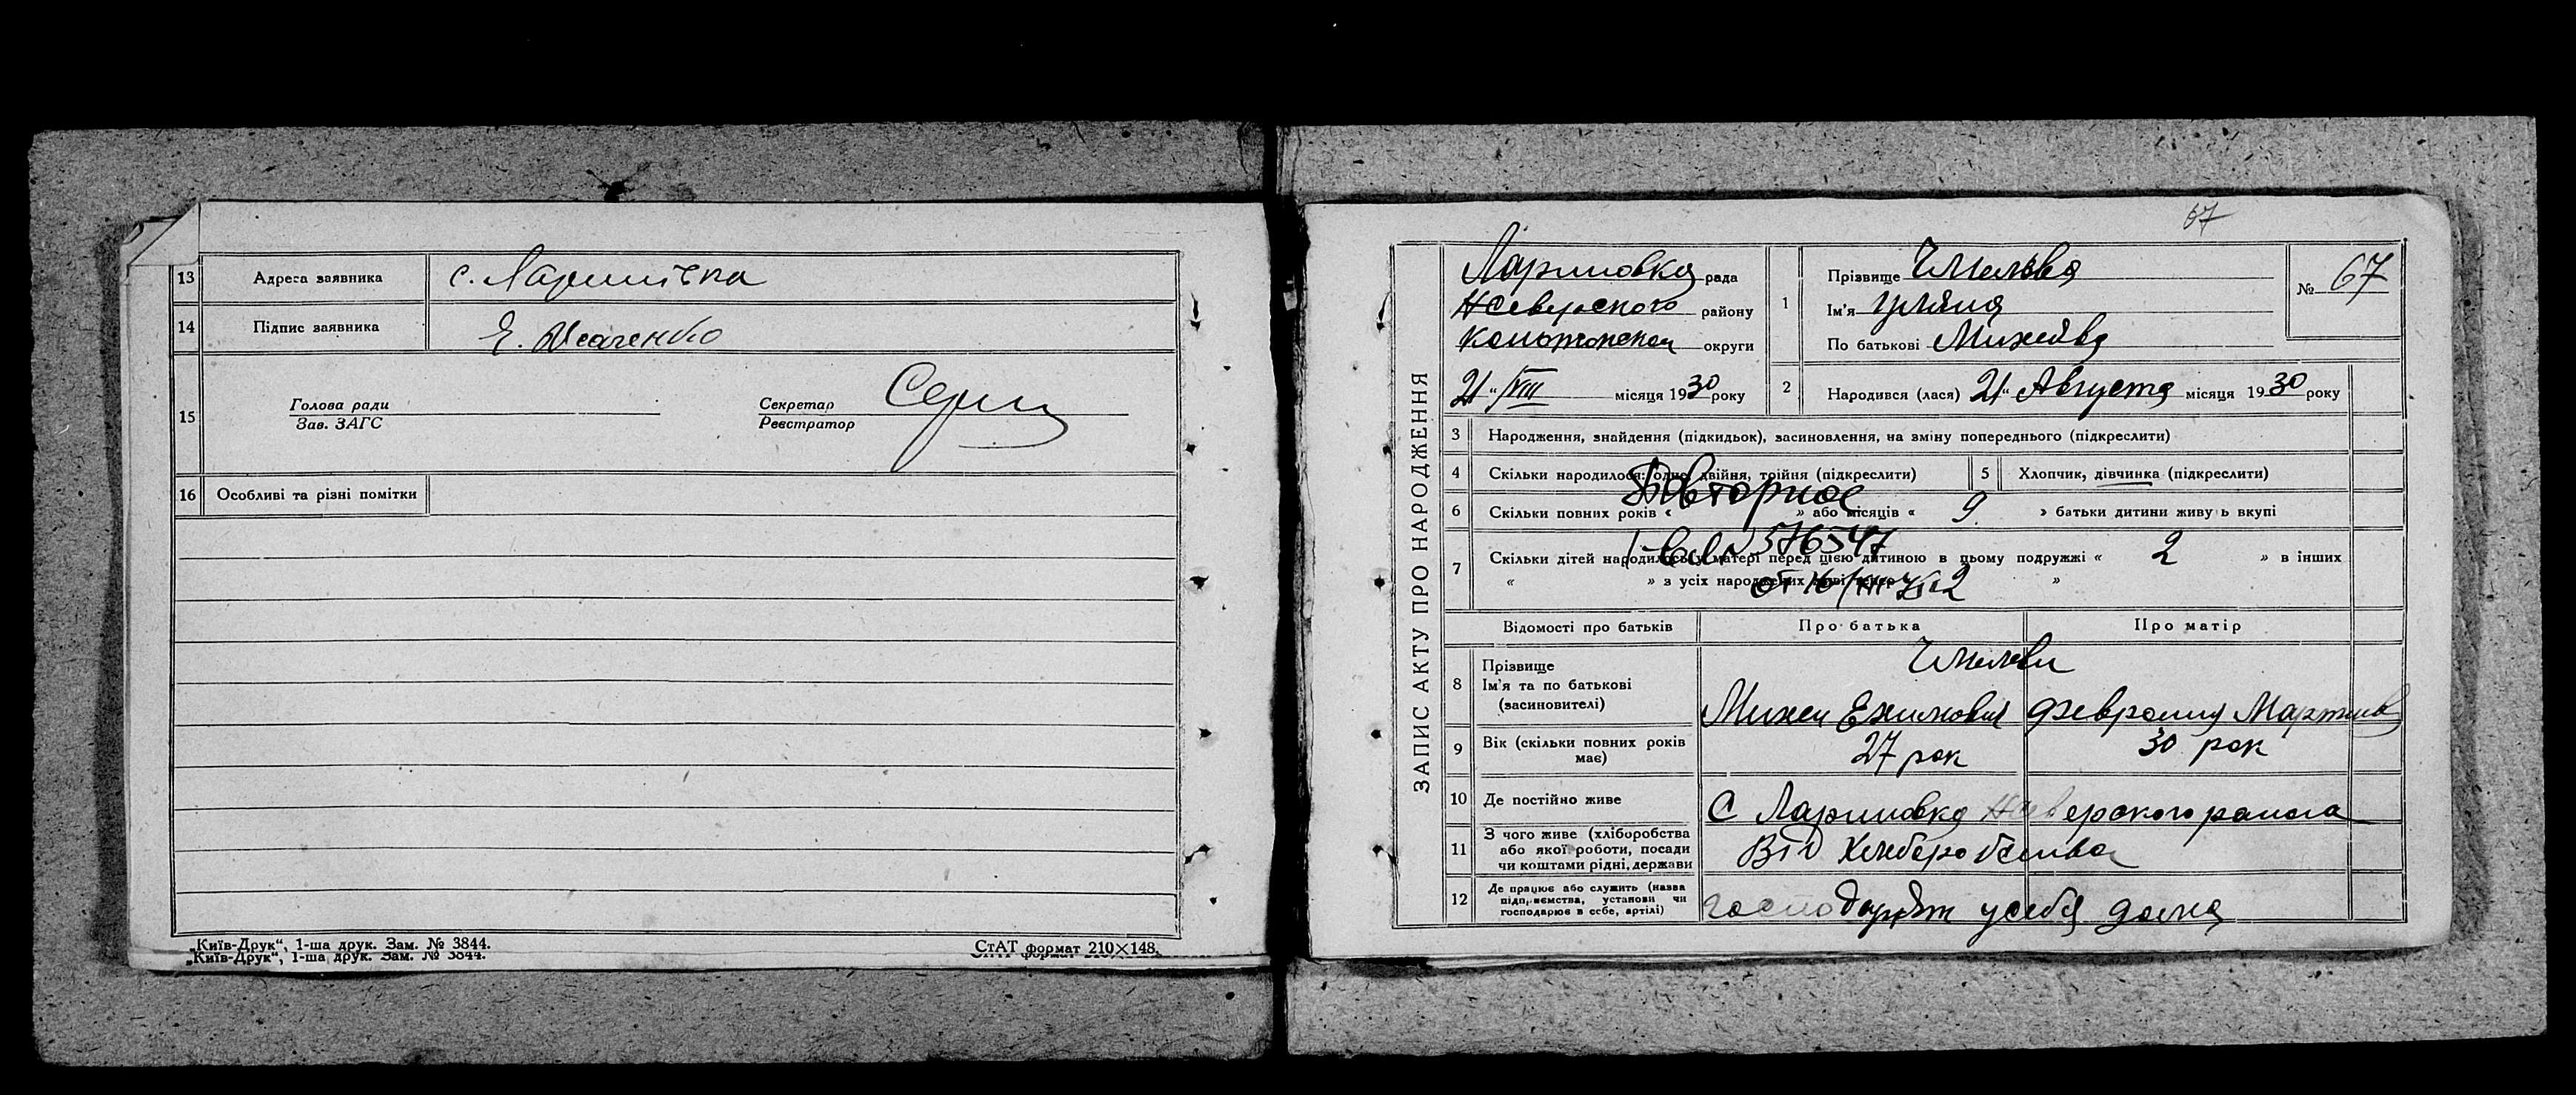 13 Адреса заявника с. Ларинівка
14 Підпис заявника Е. Исаченко
15 Голова ради Секретар
Зав. ЗАГС Реєстратор
16 Особливі та різні помітки
„Київ-Друк“, 1-ша друк. Зам. № 3844.
„Київ-Друк“, 1-ша друк. Зам. № 3844.
СтАТ формат 210×148.
67
ЗАПИС АКТУ ПРО НАРОДЖЕННЯ
Лариновка рада
Нсеверского району
округи
21 “/VIII місяця 1930 року
1 Прізвище
Ім'я
По батькові
№ 67
2 Народився (лася) 21“ Августа місяця 1930 року
3 Народження, знайдення (підкидьок), засиновлення, на зміну попереднього (підкреслити)
4 Скільки народилося: одно, двійня, трійня (підкреслити)
5 Хлопчик, дівчинка (підкреслити)
Повторное
6 Скільки повних років « » або місяців « 9 » батьки дитини живуть вкупі
576547
7 Скільки дітей народилось у матері перед цією дитиною в цьому подружжі « 2 » в інших
« » з усіх народжених »
Відомості про батьків Про батька Про матір
8 Прізвище
Ім'я та по батькові
(засиновителі)
Михей Ехимович Феврония Мартинв
9 Вік (скільки повних років має) 27 рок 30 рок
10 Де постійно живе С Лариновка Нсеверского раиога
11 З чого живе (хліборобства
або якої роботи, посади
чи коштами рідні, держави
Від Хлибробства
12 Де працює або служить (назва
підприємства, установи чи
господарює в себе, артілі)
усебя дома